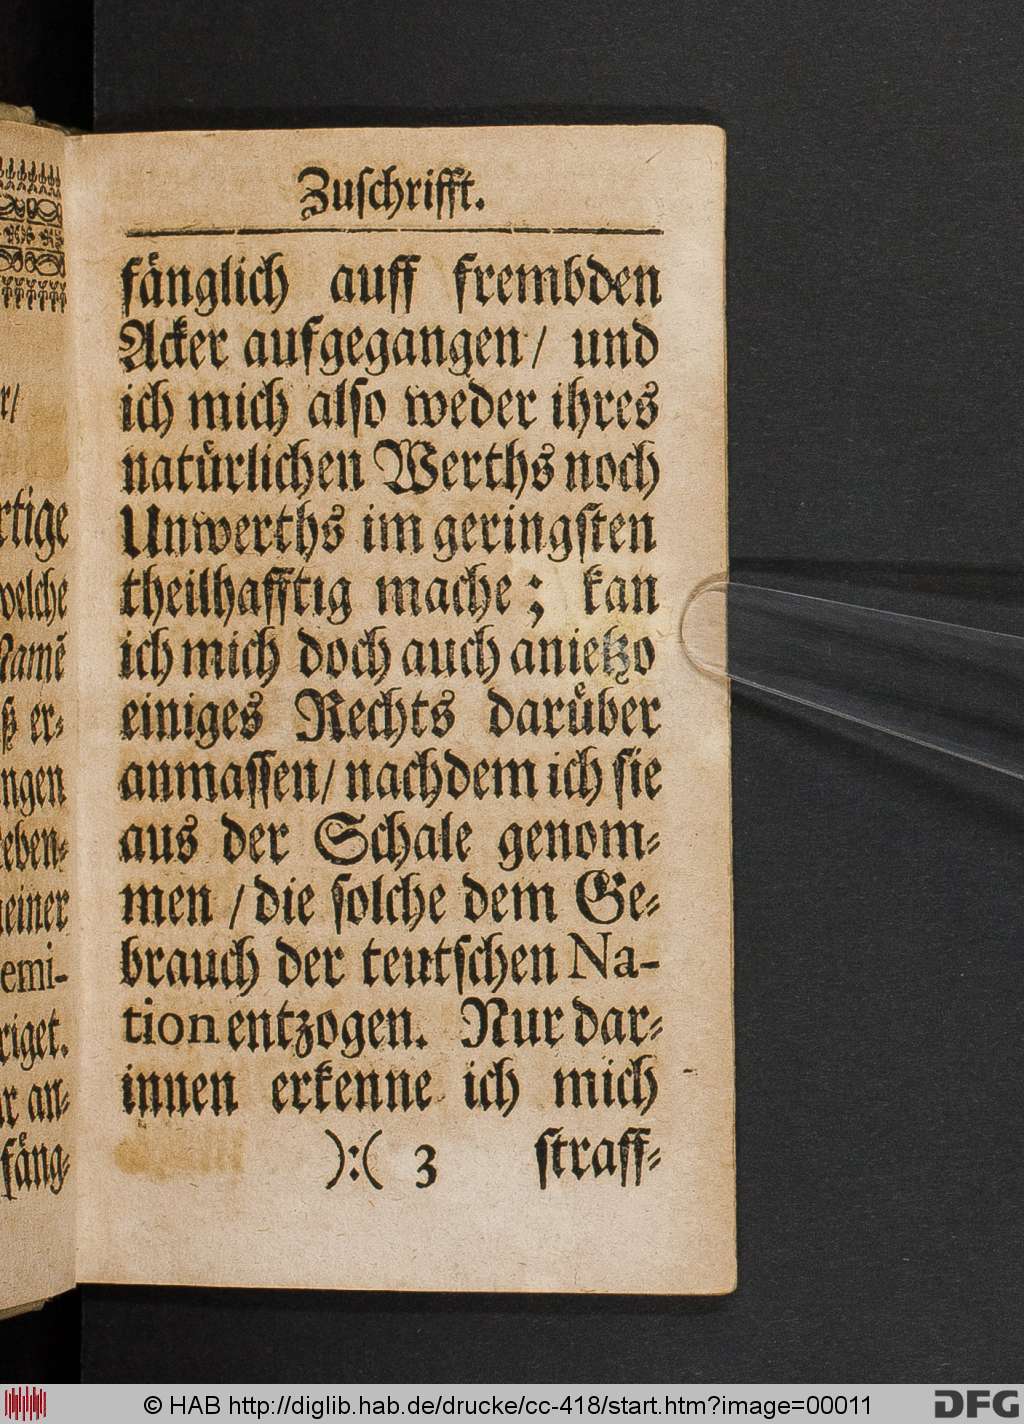 Zuſchrifft.
fänglich auff frembden
Acker aufgegangen / und
ich mich alſo weder ihres
natürlichen Werths noch
Unwerths im geringſten
theilhafftig mache; kan
ich mich doch auch anietzo
einiges Rechts darüber
anmaſſen / nachdem ich ſie
aus der Schale genom⸗
men / die ſolche dem Ge⸗
brauch der teutſchen Na-
tion entzogen. Nur dar⸗
innen erkenne ich mich
):( 3 ſtraff⸗
r/
rtige
welche
Namẽ
ß er⸗
ngen
eben⸗
einer
emi-
riget.
r an⸗
fäng⸗
© HAB http://diglib.hab.de/drucke/cc-418/start.htm?image=00011
DFG